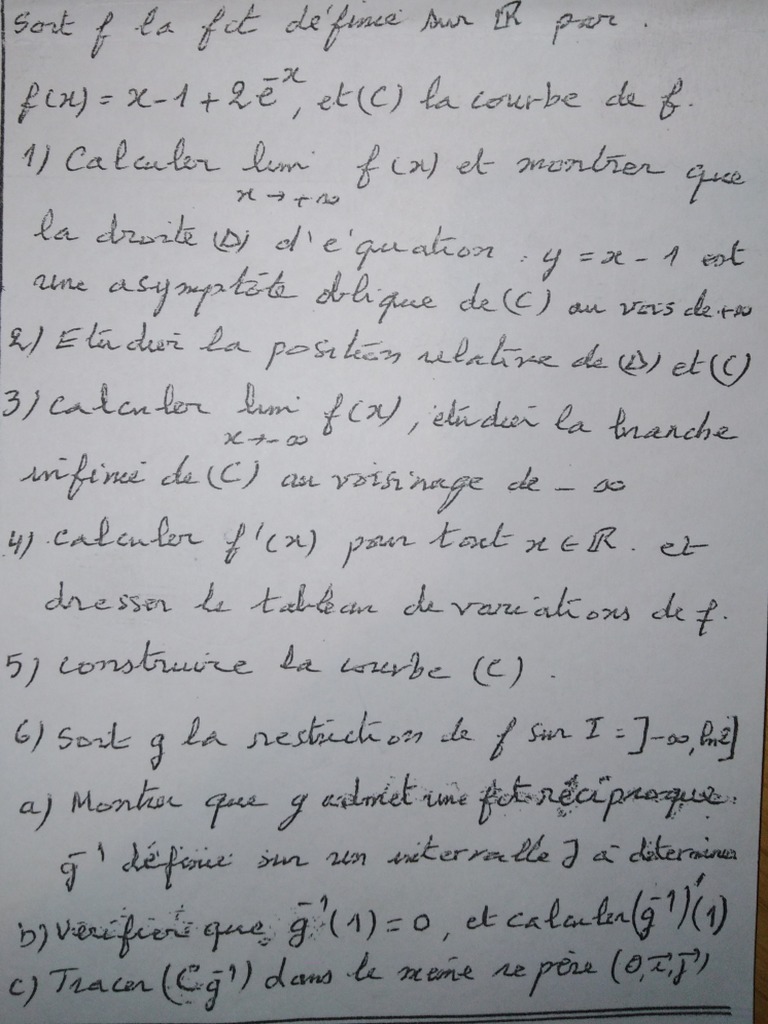 Soit f la fct définie sur ℝ par .
f(x) = x - 1 + 2e⁻ˣ, et (C) la courbe de f.
1) Calculer lim f(x) et montrer que
x → +∞
la droite (Δ) d'équation : y = x - 1 est
une asymptôte oblique de (C) au vois de +∞
2) Etudier la position relative de (Δ) et (C)
3) calculer lim f(x), étudier la branche
x → -∞
infinie de (C) au voisinage de - ∞
4) calculer f'(x) pour tout x ∈ ℝ. et
dresser le tableau de variations de f.
5) construire la courbe (C) .
6) Soit g la restriction de f sur I = ]-∞, ln2]
a) Montrer que g admet une fct réciproque
g⁻¹ définie sur un intervalle J à déterminer
b) Vérifier que g⁻¹(1) = 0, et calculer (g⁻¹)'(1)
c) Tracer (Cg⁻¹) dans le même repère (O, i⃗, j⃗)